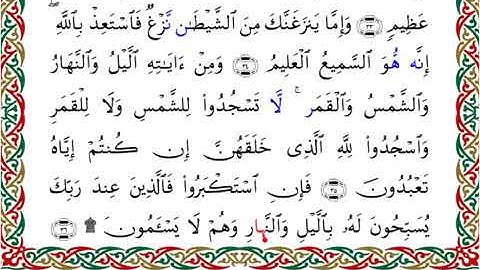 عَظِيمٖ ٣٣ وَإِمَّا يَنزَغَنَّكَ مِنَ ٱلشَّيۡطَٰن نَّزۡغٞ فَٱسۡتَعِذۡ بِٱللَّهِۖ
إِنَّه هُّوَ ٱلسَّمِيعُ ٱلۡعَلِيمُ ٣٤ وَمِنۡ ءَايَٰتِهِ ٱلَّيۡلُ وَٱلنَّهَارُ
وَٱلشَّمۡسُ وَٱلۡقَمَرۚ لَّا تَسۡجُدُواْ لِلشَّمۡسِ وَلَا لِلۡقَمَرِ
وَٱسۡجُدُواْ لِلَّهِ ٱلَّذِي خَلَقَهُنَّ إِن كُنتُمۡ إِيَّاهُ
تَعۡبُدُونَ ٣٥ فَإِنِ ٱسۡتَكۡبَرُواْ فَٱلَّذِينَ عِندَ رَبِّكَ
يُسَبِّحُونَ لَهُۥ بِٱلَّيۡلِ وَٱلنَّهارِ وَهُمۡ لَا يَسۡـَٔمُونَ ۩ ٣٦